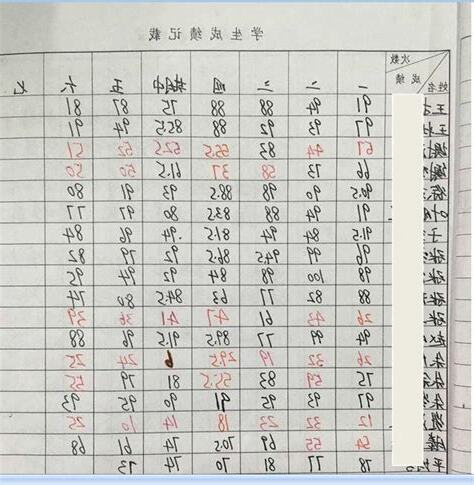 学生成绩记载
次数
成绩
姓名 一 二 三 四 期中 五 六 七
王 91 94 88 88 75 87 81
王 97 93 92 88 85.5 94 91
谢 57 44 83 55.5 52.5 52 51
谢 66 73 58 37 61.5 50 50
徐 90.5 90 98 88.5 93 91 80
叶 91 94 88 83.5 80 97 77
于 91.5 84 94 81.5 94 96 84
张 96 99 94.5 86.5 92 79 82
张 98 100 98 84 92 94 95
张 88 82 77 63 84.5 80 74
张 26 43 61 47 41 36 39
赵 94 99 77 89.5 91.5 96 88
朱 26 32 19 29.5 6 24 25
朱 75 59 83 55.5 81 79 55
朱 97 93 95 91 90 95 93
12 32 23 18 14 10 25
54 55 69 70.5 74 61 68
平均 78 77 81 70 74 73